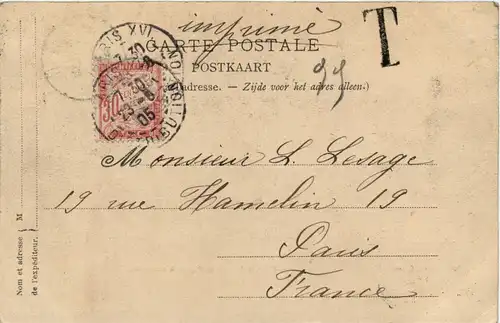 imprimé
T
CARTE POSTALE
POSTKAART
adresse. — Zijde voor het adres alleen.)
PARIS XVI
7 30
DISTRIBUTION
30
05
Monsieur L. Lesage
19 rue Hamelin 19
Paris
France
Nom et adresse } M
de l'expéditeur. }